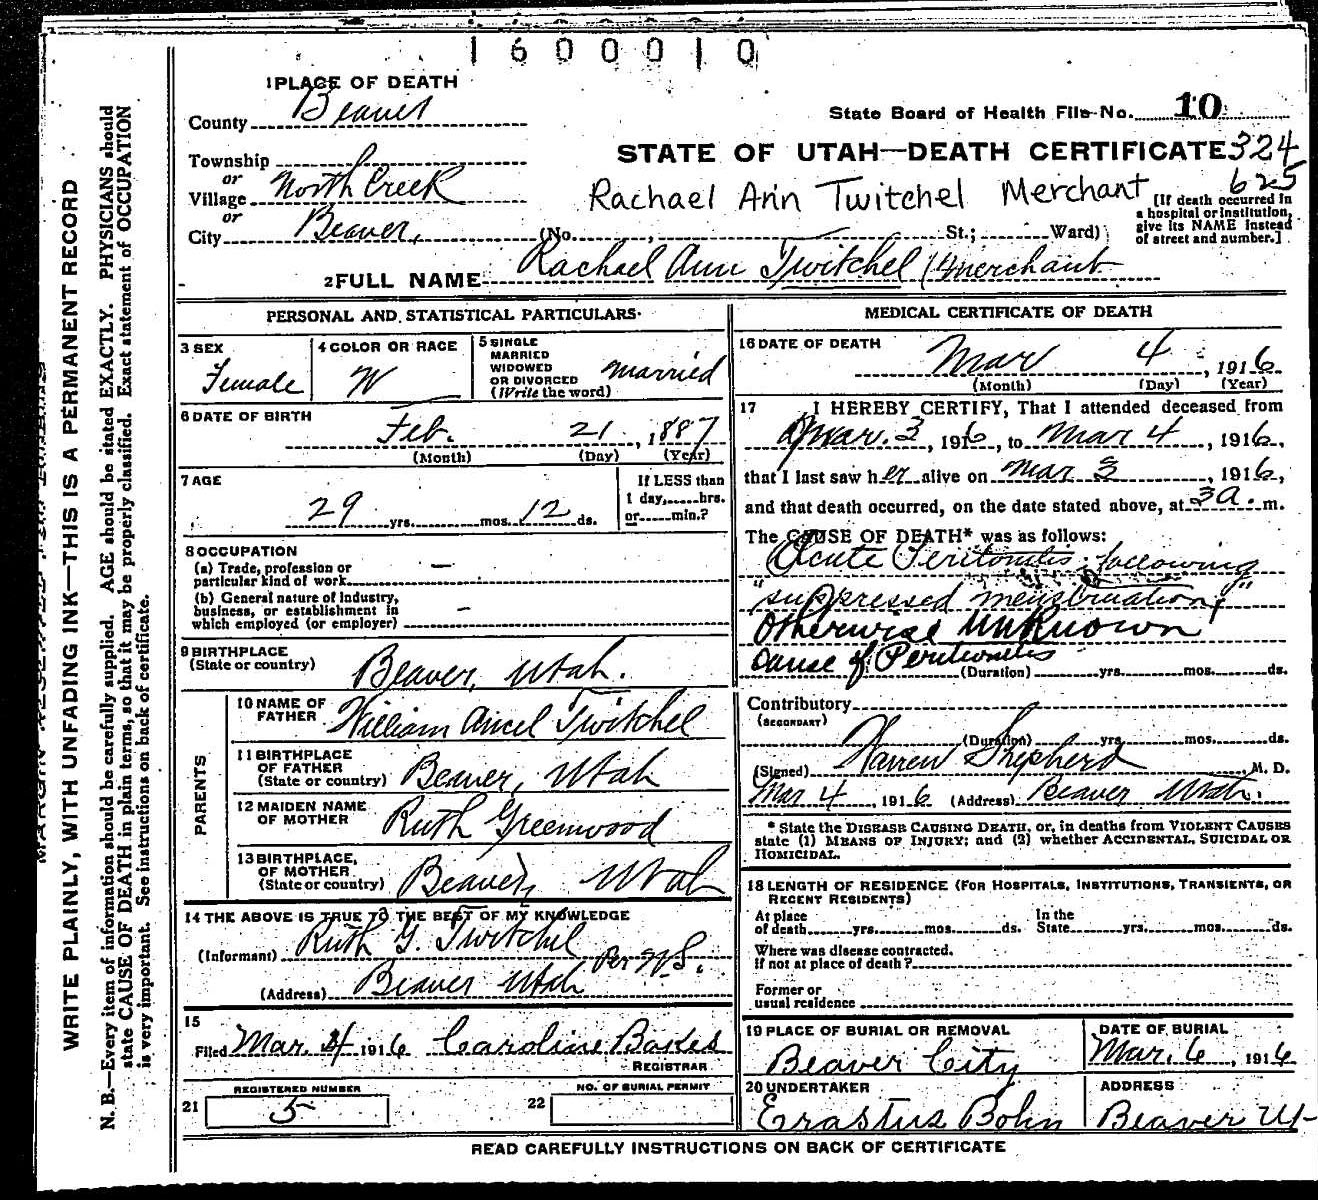 1600010
1 PLACE OF DEATH
County Beaver
State Board of Health File No. 10
Township
or
Village North Creek
or
City Beaver,
STATE OF UTAH—DEATH CERTIFICATE 324
625
Rachael Ann Twitchel Merchant
[If death occurred in
a hospital or institution,
give its NAME instead
of street and number.]
(No. , St.; Ward)
2 FULL NAME Rachael Ann Twitchel (Merchant
PERSONAL AND STATISTICAL PARTICULARS
3 SEX
Female
4 COLOR OR RACE
W
5 SINGLE
MARRIED
WIDOWED
OR DIVORCED
(Write the word)
married
6 DATE OF BIRTH
Feb. 21, 1887
(Month) (Day) (Year)
7 AGE
29 yrs. mos. 12 ds.
If LESS than
1 day, hrs.
or min.?
8 OCCUPATION
(a) Trade, profession or
particular kind of work —
(b) General nature of Industry,
business, or establishment in
which employed (or employer) —
9 BIRTHPLACE
(State or country) Beaver, Utah.
PARENTS
10 NAME OF
FATHER William Ancel Twitchel
11 BIRTHPLACE
OF FATHER
(State or country) Beaver, Utah
12 MAIDEN NAME
OF MOTHER Ruth Greenwood
13 BIRTHPLACE,
OF MOTHER
(State or country) Beaver, Utah
14 THE ABOVE IS TRUE TO THE BEST OF MY KNOWLEDGE
(Informant) Ruth G. Twitchel
Per W.S.
(Address) Beaver Utah
15
Filed Mar. 4 1916 Caroline Bakes
REGISTRAR
REGISTERED NUMBER
21 5
NO. OF BURIAL PERMIT
22
MEDICAL CERTIFICATE OF DEATH
16 DATE OF DEATH
Mar 4, 1916
(Month) (Day) (Year)
17 I HEREBY CERTIFY, That I attended deceased from
Mar. 3, 1916, to Mar 4, 1916,
that I last saw her alive on Mar 3, 1916,
and that death occurred, on the date stated above, at 3 a. m.
The CAUSE OF DEATH* was as follows:
Acute Peritonitis following
"suppressed menstruation,"
otherwise unknown
cause of Peritonitis
(Duration) yrs. mos. ds.
Contributory
(SECONDARY)
(Duration) yrs. mos. ds.
(Signed) Warren Shepherd, M. D.
Mar 4, 1916 (Address) Beaver Utah.
* State the DISEASE CAUSING DEATH, or, in deaths from VIOLENT CAUSES
state (1) MEANS OF INJURY; and (2) whether ACCIDENTAL, SUICIDAL OR
HOMICIDAL.
18 LENGTH OF RESIDENCE (FOR HOSPITALS, INSTITUTIONS, TRANSIENTS, OR
RECENT RESIDENTS)
At place
of death yrs. mos. ds.
In the
State yrs. mos. ds.
Where was disease contracted.
If not at place of death?
Former or
usual residence
19 PLACE OF BURIAL OR REMOVAL
Beaver City
DATE OF BURIAL
Mar. 6, 1916
20 UNDERTAKER
Erastus Bohn
ADDRESS
Beaver Ut
READ CAREFULLY INSTRUCTIONS ON BACK OF CERTIFICATE
WRITE PLAINLY, WITH UNFADING INK—THIS IS A PERMANENT RECORD
N. B.—Every item of information should be carefully supplied. AGE should be stated EXACTLY. PHYSICIANS should
state CAUSE OF DEATH in plain terms, so that it may be properly classified. Exact statement of OCCUPATION
is very important. See instructions on back of certificate.